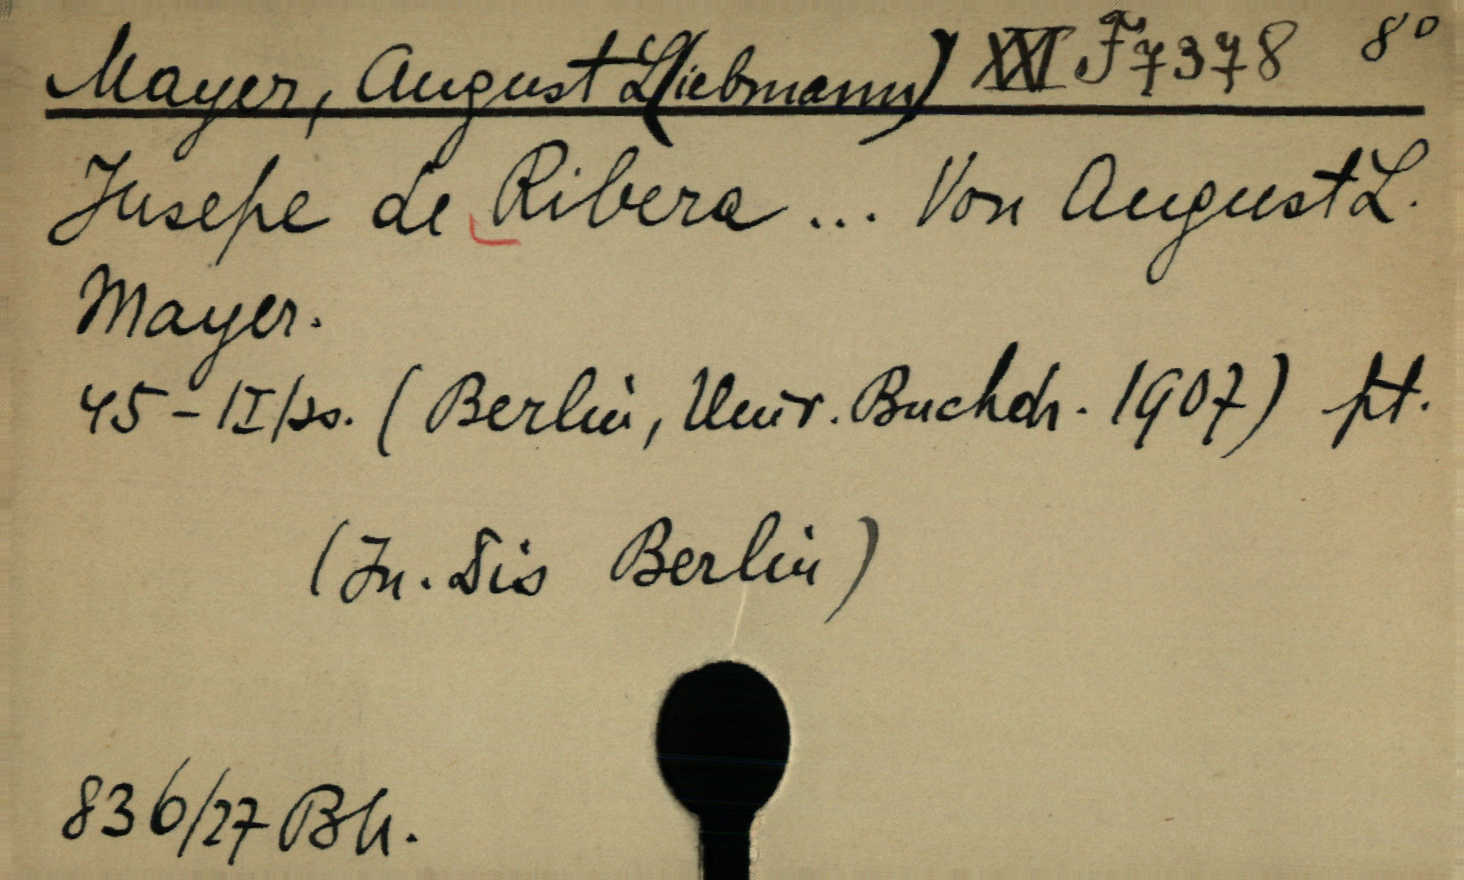 Mayer, August L(iebmann) XXI F 7378 8°
Jusepe de Ribera ... Von August L.
Mayer.
45-II/ss. (Berlin, Univ. Buchdr. 1907) pt.
(In. Dis Berlin)
836/27 Bh.